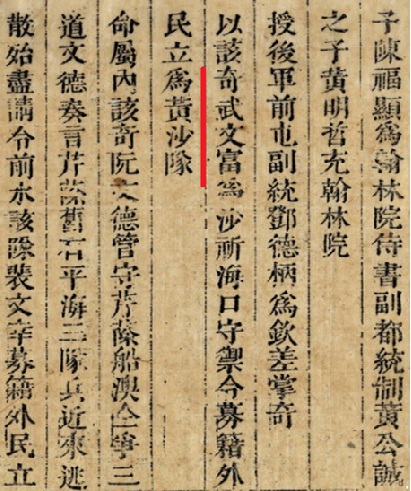 子陳福顯爲翰林院侍書副都統制黃公誠
之子黃明哲充翰林院
授後軍前屯副統鄧德柄爲欽差掌奇
以該奇武文富爲沙祈海口守禦令募籍外
民立爲黃沙隊
命屬內該奇阮文德管守芹蒢船澳仝寧三
道文德奏言芹蒢舊有平海三隊兵近來逃
散始盡請令前水該隊裴文幸募籍外民立